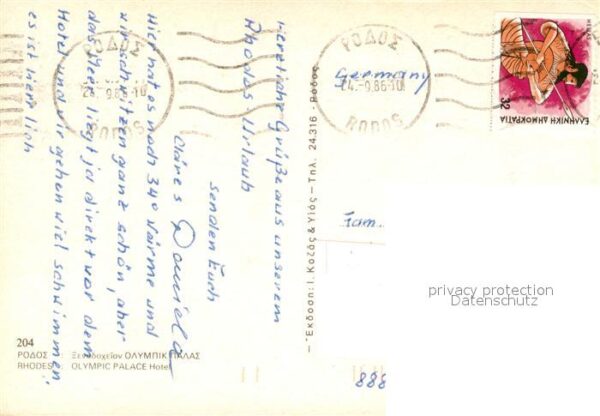 Herzliche Grüße aus unserem
Rhodos Urlaub
senden Euch
Claire & Daniela
Hier hat es noch 34° Wärme und
wir schwitzen ganz schön, aber
das Meer liegt ja direkt vor dem
Hotel und wir gehen viel schwimmen
es ist herrlich
204
ΡΟΔΟΣ Ξενοδοχείον ΟΛΥΜΠΙΚ ΠΑΛΑΣ
RHODES OLYMPIC PALACE Hotel
Έκδοση: Ι. Κοζάς & Υιός – Τηλ. 24.316 - Ρόδος
ΡΟΔΟΣ
24.-9.86-10
RODOS
ΡΟΔΟΣ
24.-9.86-10
RODOS
Germany
Fam.
888
32
ΕΛΛΗΝΙΚΗ ΔΗΜΟΚΡΑΤΙΑ
privacy protection
Datenschutz